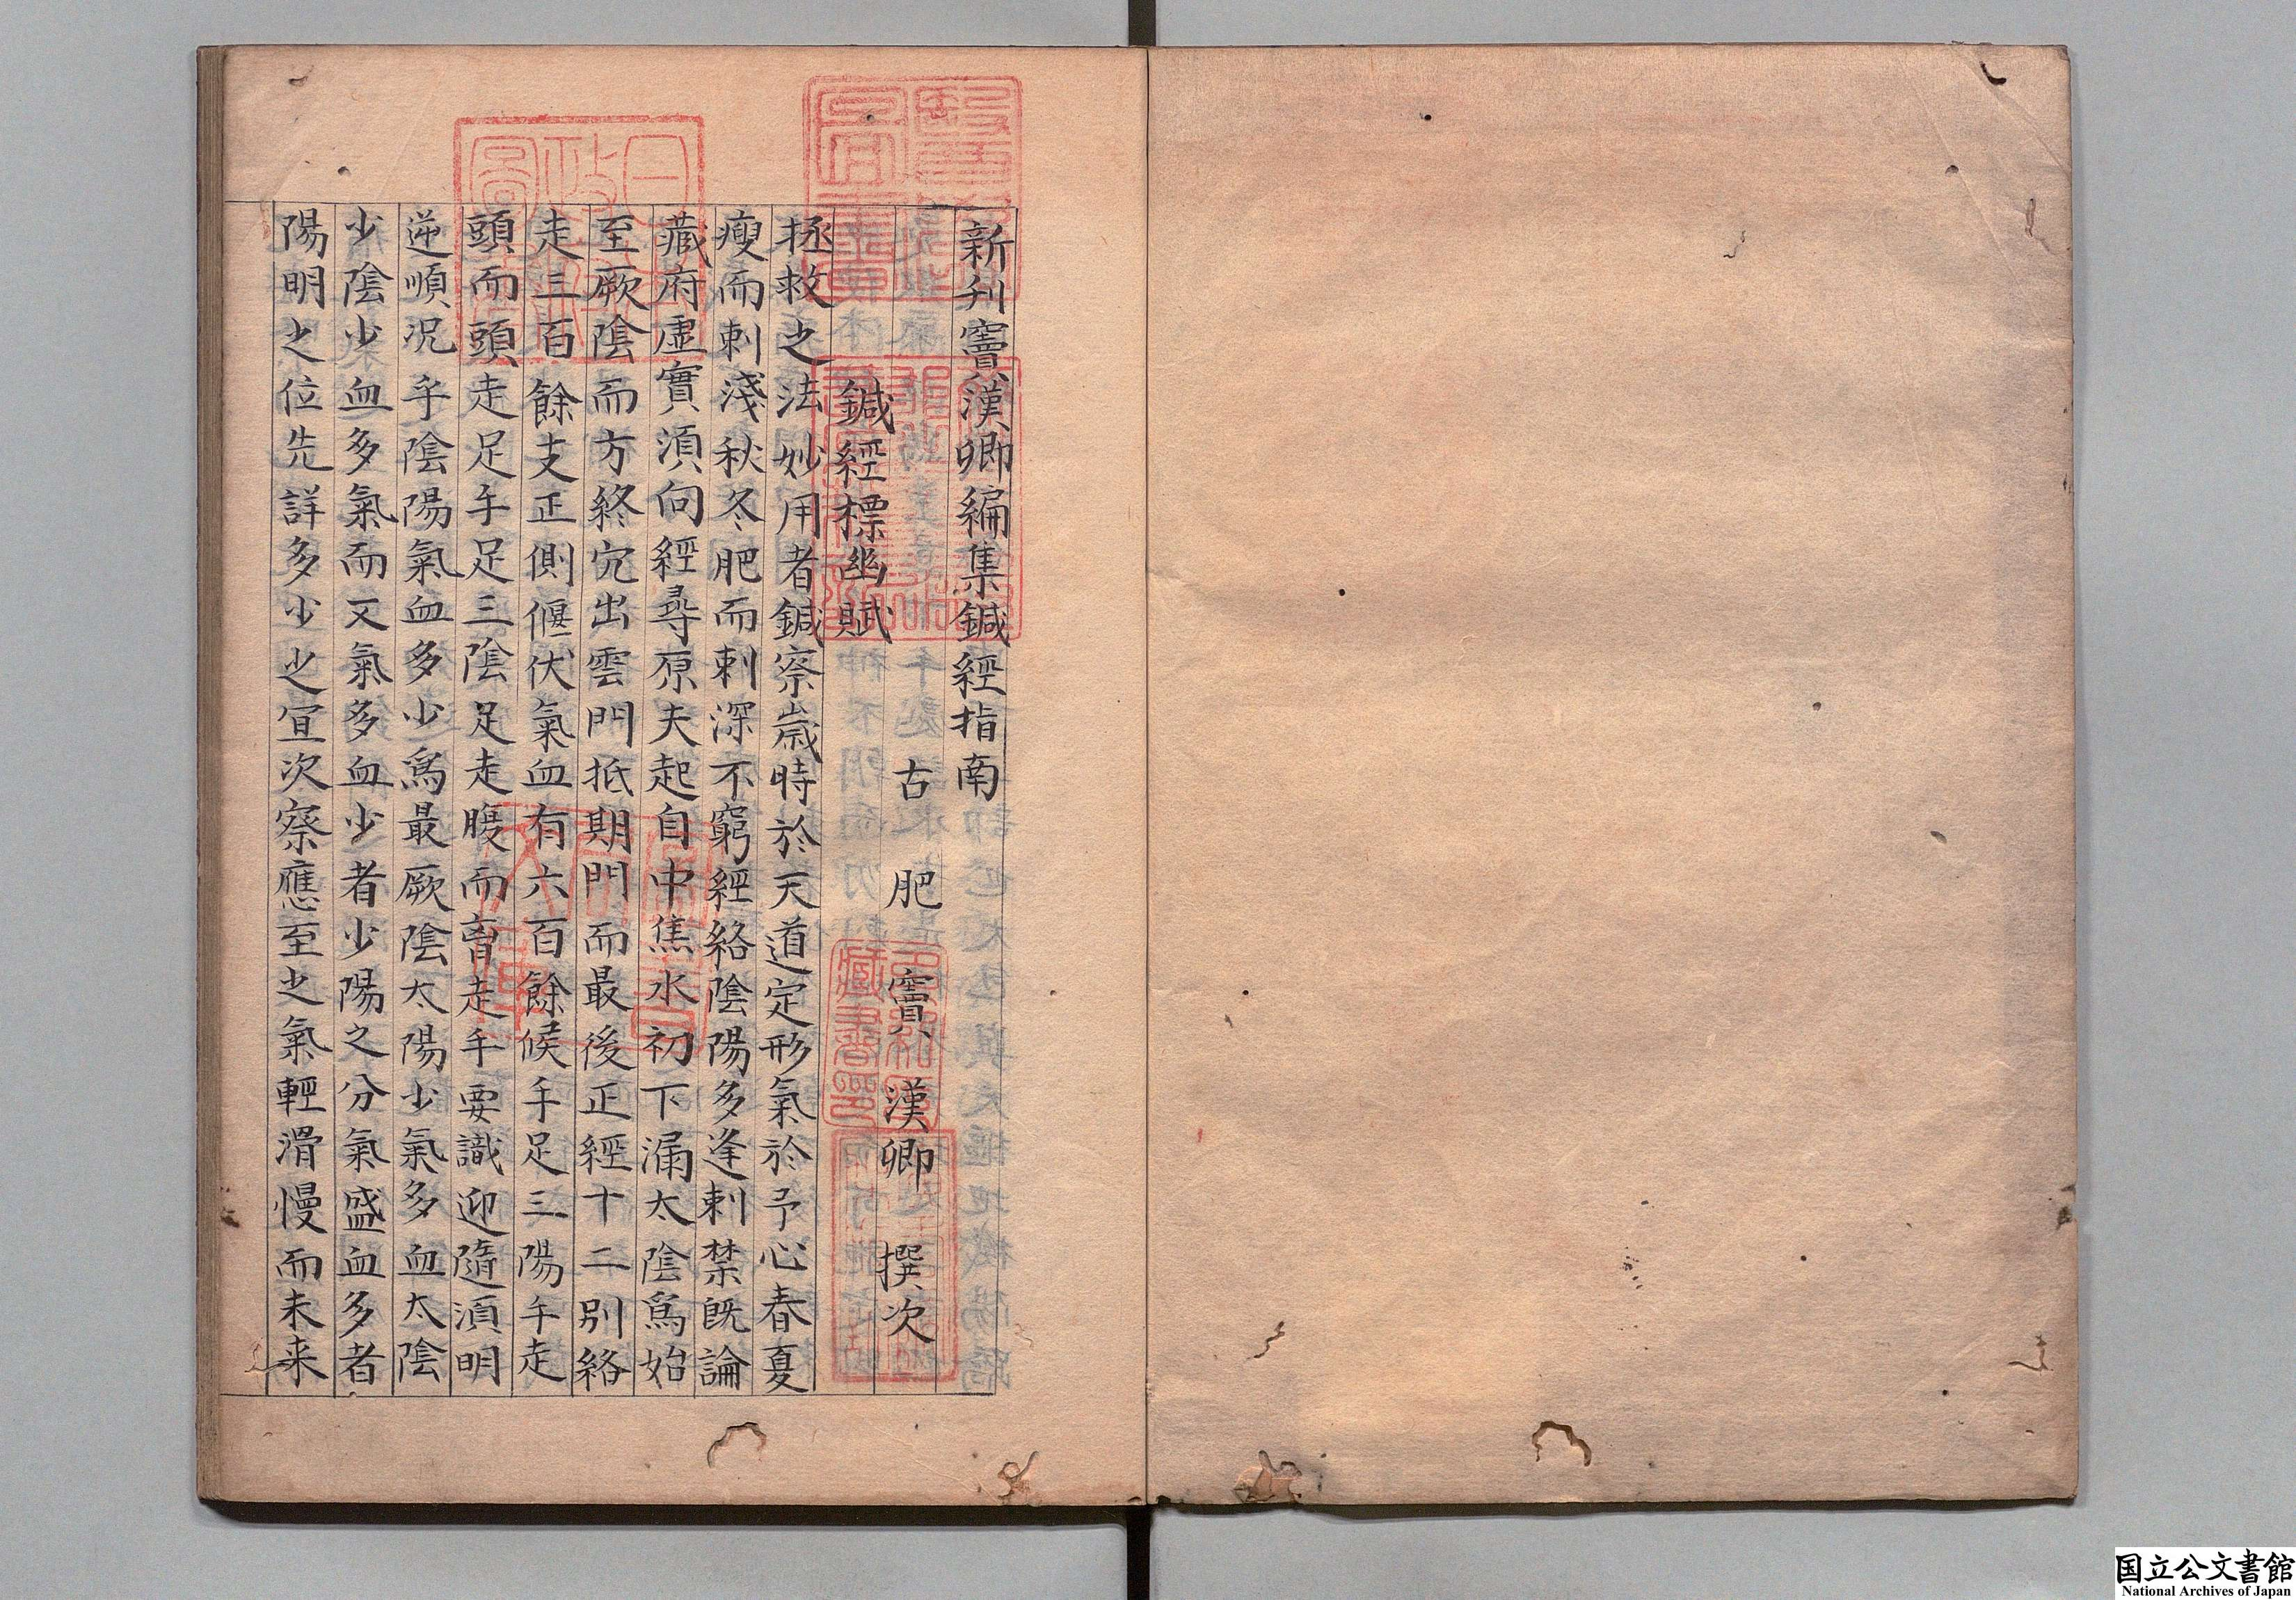 新刋竇漢卿編集鍼經指南
古肥竇漢卿撰次
鍼經標幽賦
拯救之法妙用者鍼察歲時於天道定形氣於予心春夏
瘦而刺淺秋冬肥而刺深不窮經絡陰陽多逢刺禁旣論
藏府虛實須向經尋原夫起自中焦水初下漏太陰爲始
至厥陰而方終穴出雲門抵期門而最後正經十二別絡
走三百餘支正側偃伏氣血有六百餘候手足三陽手走
頭而頭走足手足三陰足走腹而胷走手要識迎隨須明
逆順况乎陰陽氣血多少爲最厥陰太陽少氣多血太陰
少陰少血多氣而又氣多血少者少陽之分氣盛血多者
陽明之位先詳多少之宜次察應至之氣輕滑慢而未来
国立公文書館
National Archives of Japan